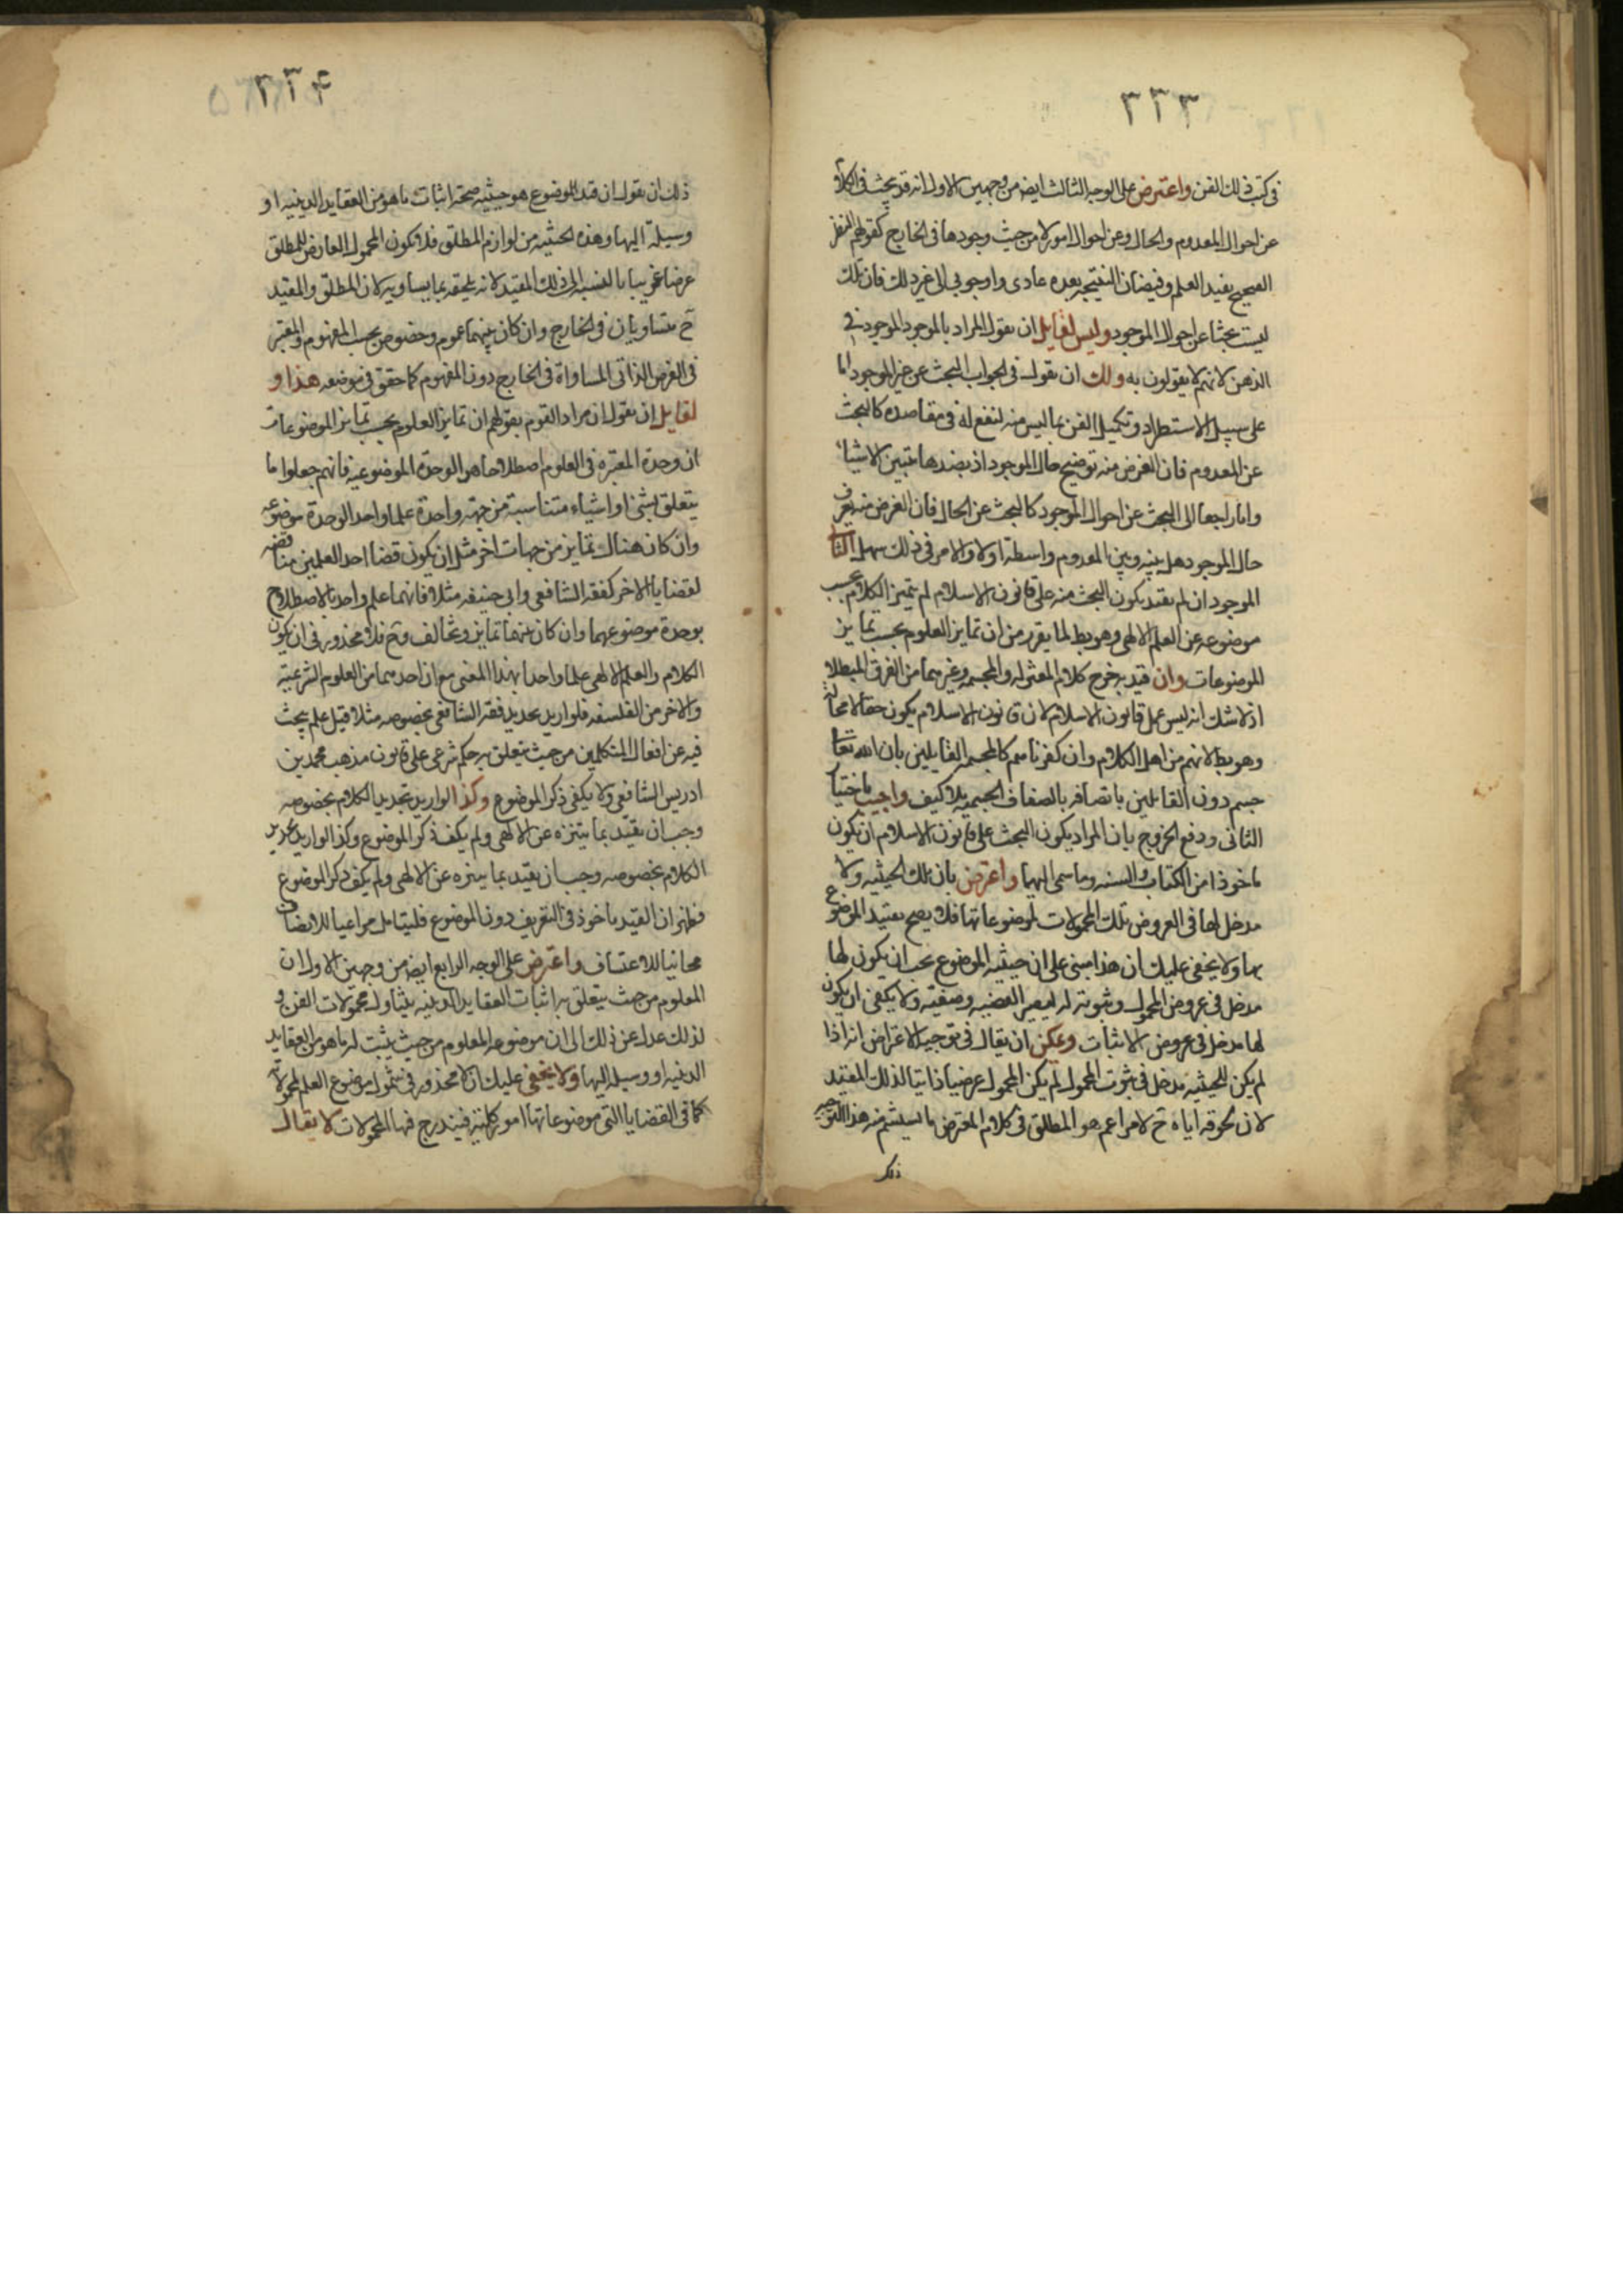 ٣٣٣
فى كتب ذلك الفن واعترض على الوجه الثالث ايضا من وجهين الاول انه قد يبحث فى الكلام
عن احوال المعدوم والحال وعن احوال امور لا من حيث وجودها فى الخارج كقولهم النظر
الصحيح يفيد العلم وفيضان النتيجة بعده عادى او وجوبى الى غير ذلك فان تلك
ليست بحثا عن احوال الموجود وليس لقايل ان يقول المراد بالموجود الموجود فى
الذهن لانهم لا يقولون به ولك ان يقول فى الجواب البحث عن غير الموجود اما
على سبيل الاستطراد وتكميل الفن بما ليس منه لنفع له فى مقاصده كالبحث
عن المعدوم فان الغرض منه توضيح حال الموجود اذ بضدها تتبين الاشيا
واما راجعا الى البحث عن احوال الموجود كالبحث عن الحال فان الغرض منه يعرف
حال الموجود هل بينه وبين المعدوم واسطة او لا والامر فى ذلك سهل الثا
الموجود ان لم يقيد بكون البحث منه على قانون الاسلام لم يتميز الكلام بحسب
موضوعه عن العلم الالهى وهو بط لما يقرر من ان تمايز العلوم بحسب تمايز
الموضوعات وان قيد به خرج كلام المعتزله والمجسمه وغيرهما من الفرق المبطله
اذ لا شك انه ليس على قانون الاسلام لان قانون الاسلام يكون حقا لا محالة
وهو بط لانهم من اهل الكلام وان كفرناهم كالمجسمه القايلين بان الله تعا
جسم دون القايلين باتصافه بالصفات الجسميه بلا كيف واجيب باختيا
الثانى ودفع الخروج بان المراد بكون البحث على قانون الاسلام ان يكون
ماخوذا من الكتاب والسنه وما سمى اليهما واعترض بان تلك الحيثيه ولا
مدخل لها فى العروض تلك المحمولات لموضوعاتها فلا يصح تقييد الموضوع
بها ولا يخفى عليك ان هذا مبنى على ان حيثيه الموضوع يجب ان يكون لها
مدخل فى عروض المحمول وثبوته له ولا يكفى ان يكون
لها مدخل فى عروض الاثبات ويمكن ان يقال فى توجيه الاعتراض انه اذا
لم يكن للحيثيه مدخل فى ثبوت المحمول لم يكن المحمول عرضيا ذاتيا لذلك المقيد
لان لحوقه اياه ح لامر اعم هو المطلق فى كلام المعترض ما ليشم منه هذا التوجيه
ذلك
٣٣۴
ذلك ان يقول ان قيد الموضوع هو حيثيه صحة اثبات ما هو من العقايد الدينيه او
وسيلة اليها وهذه الحيثيه من لوازم المطلق فلا يكون المحمول العارض للمطلق
عرضا غريبا بالنسبه الى ذلك المقيد لانه يلحقه بما يساويه لان المطلق والمقيد
ح متساويان فى الخارج وان كان بينهما عموم وخصوص بحسب المفهوم والمعتبر
فى العرض الذاتى المساواة فى الخارج دون المفهوم كما حقق فى موضعه هذا و
لقايل ان يقول ان مراد القوم بقولهم ان تمايز العلوم بحسب تمايز الموضوعات
ان وحدة المعتبره فى العلوم اصطلاحا هو الوحدة الموضوعية فانهم جعلوا ما
يتعلق بشى او اشياء متناسبة من جهة واحدة علما واحد الوحدة موضوعه
وان كان هناك تمايز من جهات اخر مثل ان يكون قضا احد العلمين مناقضه
لقضايا الاخر كفقه الشافعى وابى حنيفه مثلا فانهما علم واحد بالاصطلاح
بوحدة موضوعهما وان كان عنها تمايز وتخالف وح فلا محذور فى ان يكون
الكلام والعلم الالهى علما واحدا بهذا المعنى مع ان احدهما من العلوم الشرعيه
والاخر من الفلسفه فلو اريد تحديد فقه الشافعى بخصوصه مثلا قيل علم يبحث
فيه عن افعال المتكلمين من حيث يتعلق به حكم شرعى على قانون مذهب محمد بن
ادريس الشافعى ولا يكفى ذكر الموضوع وكذا لو اريد تحديد الكلام بخصوصه
وجب ان يقيد بما يتنزه عن الالهى ولم يكف ذكر الموضوع وكذا لو اريد تحديد
الكلام بخصوصه وجب ان يقيد بما يتنزه عن الالهى ولم يكف ذكر الموضوع
فظهر ان القيد ماخوذ فى التعريف دون الموضوع فليتامل مراعيا للانصاف
مجانبا للاعتساف واعترض على الوجه الرابع ايضا من وجهين الاول ان
المعلوم من حيث يتعلق به اثبات العقايد الدينيه يتناول محمولات الفن و
لذلك عدل عن ذلك الى ان موضوعه المعلوم من حيث يثبت له ما هو من العقايد
الدينيه او وسيله اليها ولا يخفى عليك ان لا محذور فى شمول موضوع العلم لمحمولاته
كما فى القضايا التى موضوعاتها امور كلية فيندرج فيها المحمولات لا يقال